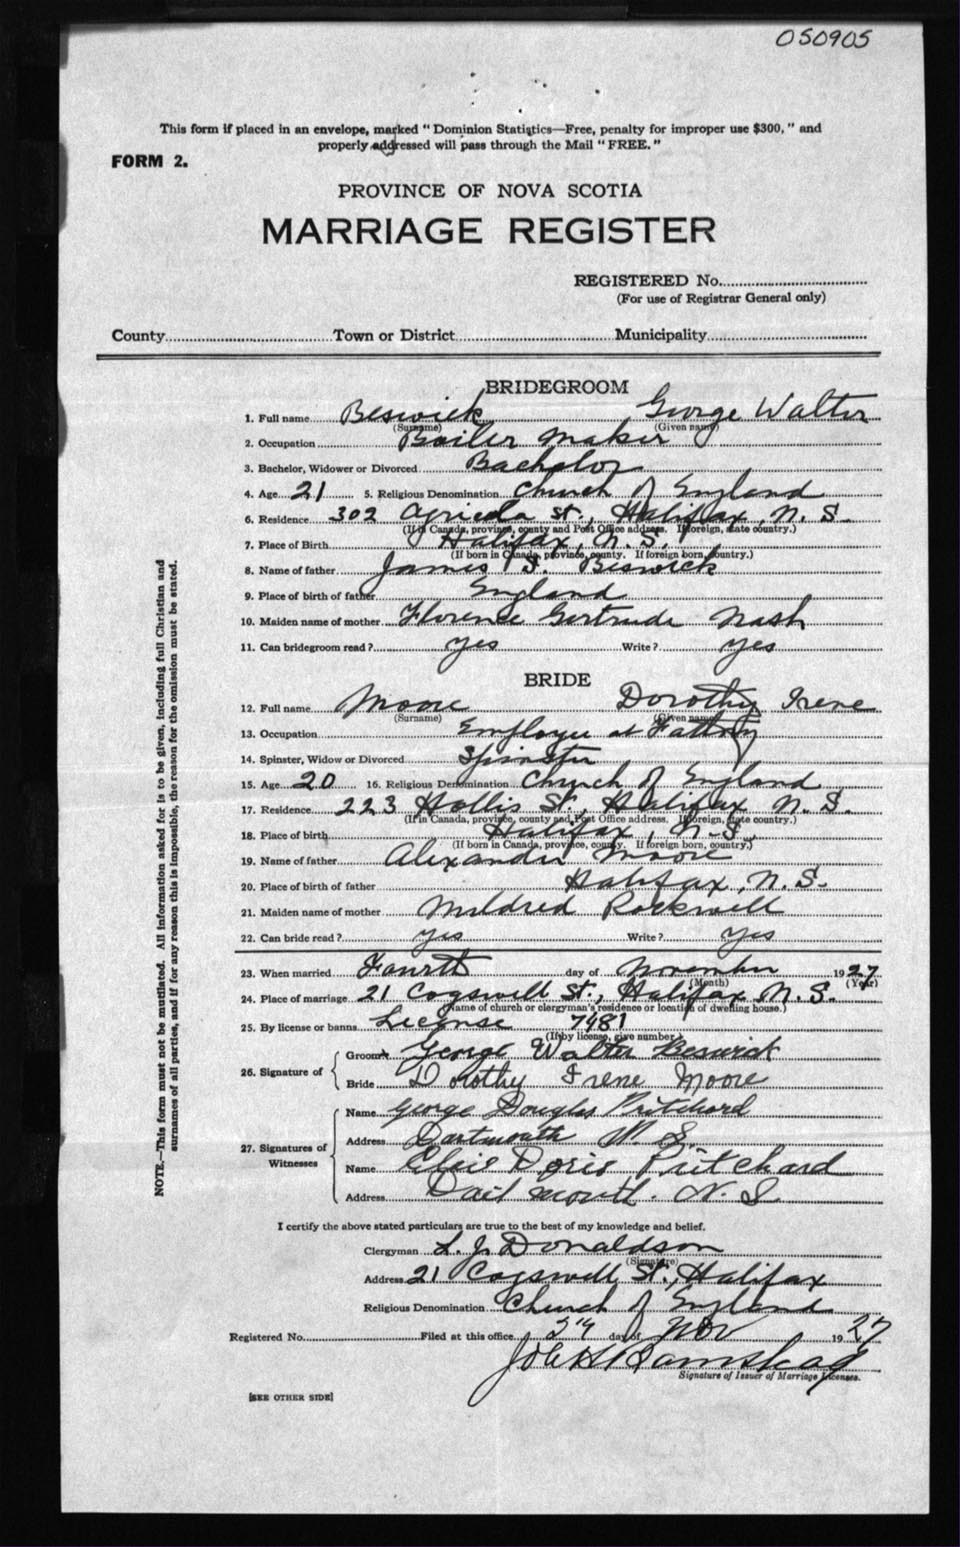 050905
This form if placed in an envelope, marked "Dominion Statistics—Free, penalty for improper use $300," and
properly addressed will pass through the Mail "FREE."
FORM 2.
PROVINCE OF NOVA SCOTIA
MARRIAGE REGISTER
REGISTERED No.
(For use of Registrar General only)
County Town or District Municipality
BRIDEGROOM
1. Full name Beswick George Walter
(Surname) (Given name)
2. Occupation Boiler Maker
3. Bachelor, Widower or Divorced Bachelor
4. Age 21 5. Religious Denomination Church of England
6. Residence 302 Agricola St., Halifax, N. S.
(If in Canada, province, county and Post Office address. If foreign, state country.)
7. Place of Birth Halifax, N. S.
(If born in Canada, province, county. If foreign born, country.)
8. Name of father James Beswick
9. Place of birth of father England
10. Maiden name of mother Florence Gertrude Nash
11. Can bridegroom read? yes Write? yes
BRIDE
12. Full name Moore Dorothy Irene
(Surname) (Given name)
13. Occupation Employee at
14. Spinster, Widow or Divorced Spinster
15. Age 20 16. Religious Denomination Church of England
17. Residence 223 Hollis St., Halifax N. S.
(If in Canada, province, county and Post Office address. If foreign, state country.)
18. Place of birth Halifax, N. S.
(If born in Canada, province, county. If foreign born, country.)
19. Name of father Alexander Moore
20. Place of birth of father Halifax, N. S.
21. Maiden name of mother Mildred Rockwell
22. Can bride read? yes Write? yes
23. When married Fourth day of November 1927
(Month) (Year)
24. Place of marriage 21 Cogswell St., Halifax N. S.
(Name of church or clergyman's residence or location of dwelling house.)
25. By license or banns License 7481
(If by license, give number)
26. Signature of
Groom George Walter Beswick
Bride Dorothy Irene Moore
27. Signatures of Witnesses
Name George Douglas Pritchard
Address Dartmouth N. S.
Name Elsie Doris Pritchard
Address Dartmouth. N. S.
I certify the above stated particulars are true to the best of my knowledge and belief.
Clergyman L. J. Donaldson
(Signature)
Address 21 Cogswell St., Halifax
Religious Denomination Church of England
Registered No. Filed at this office day of Nov 1927
Signature of Issuer of Marriage Licenses.
[SEE OTHER SIDE]
NOTE.—This form must not be mutilated. All information asked for is to be given, including full Christian and
surnames of all parties, and if for any reason this is impossible, the reason for the omission must be stated.